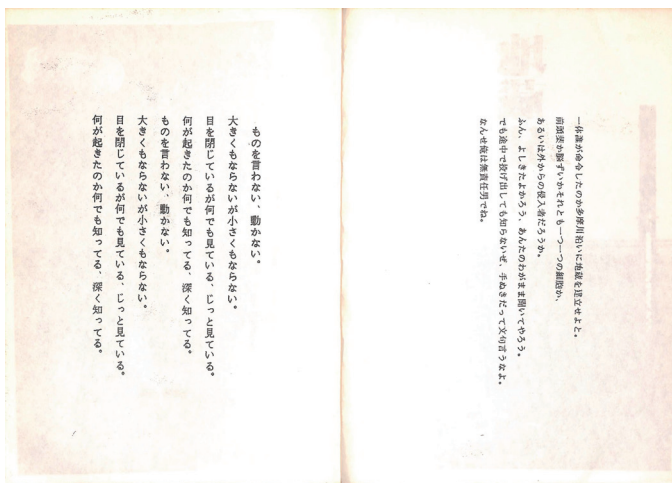 一体誰が命令したのか多摩川沿いに地蔵を建立せよと。
前頭葉か脳ずいかそれとも一つ一つの細胞か、
あるいは外からの侵入者だろうか。
ふん、よしきたよかろう、あんたのわがまま聞いてやろう。
でも途中で投げ出しても知らないぜ、手ぬきだって文句言うなよ。
なんせ俺は無責任男でね。
ものを言わない、動かない。
大きくもならないが小さくもならない。
目を閉じているが何でも見ている、じっと見ている。
何が起きたのか何でも知ってる、深く知ってる。
ものを言わない、動かない。
大きくもならないが小さくもならない。
目を閉じているが何でも見ている、じっと見ている。
何が起きたのか何でも知ってる、深く知ってる。